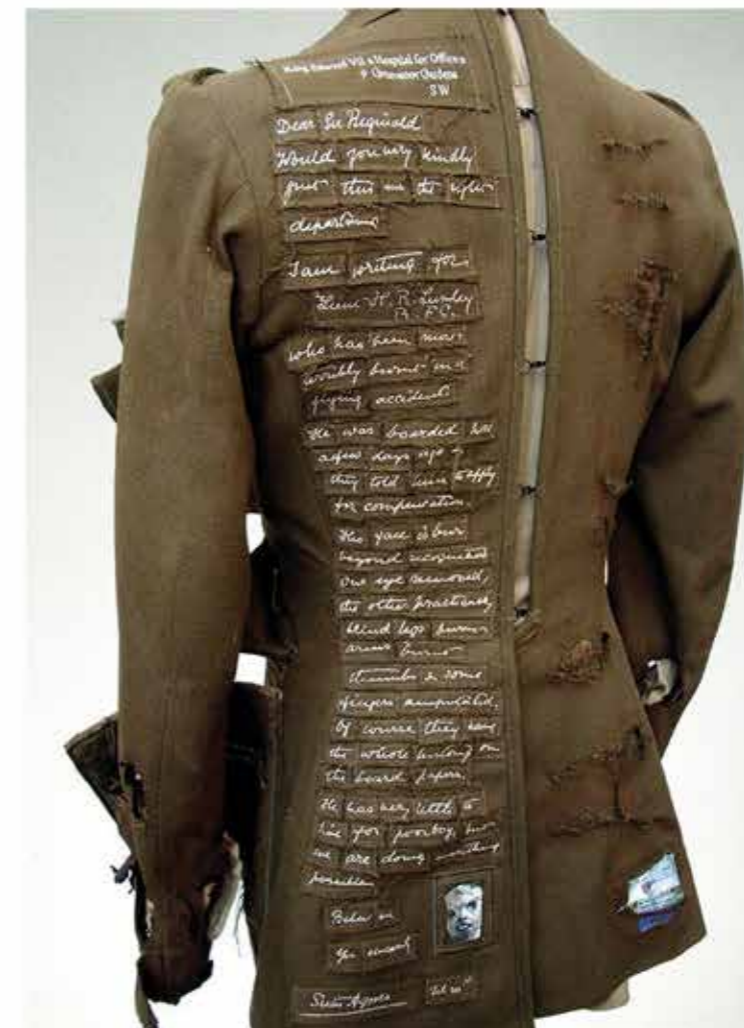 King Edward VII's Hospital for Officers
9 Grosvenor Gardens
SW
Dear Sir Reginald
Would you very kindly
put this in the right
department
I am writing for
Lieut H. R. Lumley
R. F. C.
who has been most
terribly burnt in a
flying accident.
He was boarded here
a few days ago &
they told him to apply
for compensation.
His face is burnt
beyond recognition
one eye removed,
the other practically
blind legs burnt
arms burnt
thumbs & some
fingers amputated.
Of course they have
the whole history on
the board papers.
He has very little to
live for poor boy, but
we are doing everything
possible
Believe me
Yrs sincerely
Sister Agnes